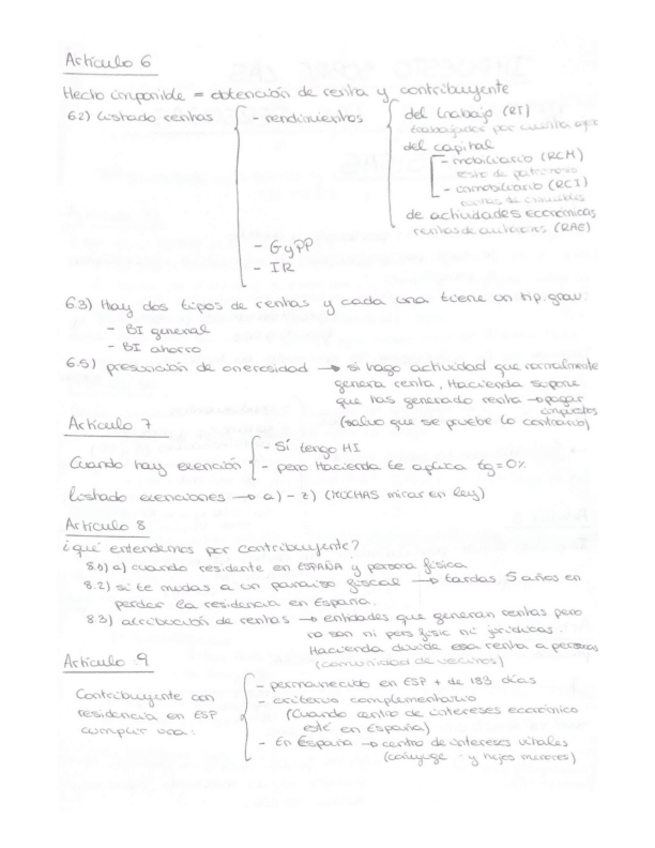 Artículo 6
Hecho imponible = obtención de renta y contribuyente
6.2) Listado rentas - rendimientos del trabajo (RT)
trabajador por cuenta aje
del capital
- mobiliario (RCM)
resto de patrimonio
- inmobiliario (RCI)
rentas de inmuebles
de actividades económicas
rentas de autónomos (RAE)
- GyPP
- IR
6.3) Hay dos tipos de rentas y cada una tiene un tip. grav.
- BI general
- BI ahorro
6.5) presunción de onerosidad → si hago actividad que normalmente
genera renta, Hacienda supone
que has generado renta → pagar
impuestos
(salvo que se pruebe lo contrario)
Artículo 7
Cuando hay exención - Sí tengo HI
- pero Hacienda te aplica tg = 0%
Listado exenciones → a) - z) (MUCHAS mirar en ley)
Artículo 8
¿qué entendemos por contribuyente?
8.1) a) cuando residente en ESPAÑA y persona física
8.2) si te mudas a un paraíso fiscal → tardas 5 años en
perder la residencia en España.
8.3) atribución de rentas → entidades que generan rentas pero
no son ni pers físic ni jurídicas.
Hacienda divide esa renta a personas
(comunidad de vecinos)
Artículo 9
Contribuyente con
residencia en ESP
cumplir una:
- permanecido en ESP + de 183 días
- criterio complementario
(Cuando centro de intereses económico
esté en España)
- En España → centro de intereses vitales
(cónyuge y hijos menores)